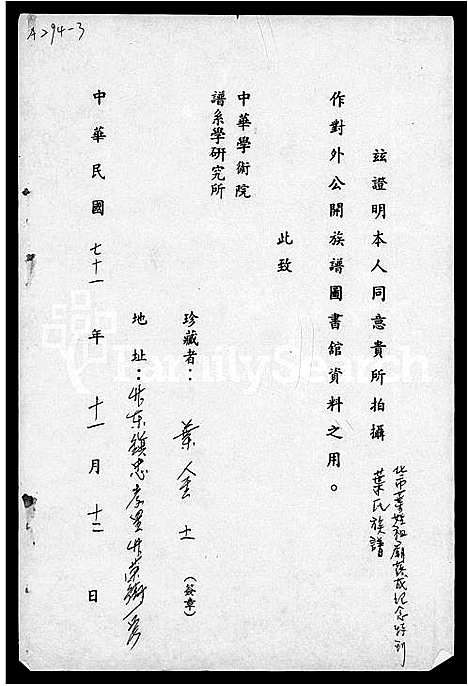 A294-3
茲證明本人同意貴所拍攝
北市葉姓祖廟落成紀念特刊
葉氏族譜
作對外公開族譜圖書館資料之用。
此致
中華學術院
譜系學研究所
珍藏者：葉金士（簽章）
地址：竹東鎮忠孝里竹榮街
中華民國七十一年十一月十二日
FamilySearch